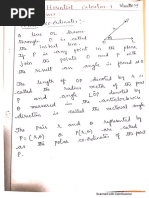 Differential Calculus - 1
Polar Co-ordinates :-
A line or drawn
through O is called
the initial line.
If P is any point in the plane
join the point O with
the result an angle is formed at O
The length of OP denoted by r is
called the radius vector of the point
P and angle denoted by
is measured in the anticlockwise
direction is called the vectored angle
The pair r and θ represented by
P = (r, θ) or P(r, θ) are called
as the polar co-ordinates of the point
P.
Scanned with CamScanner